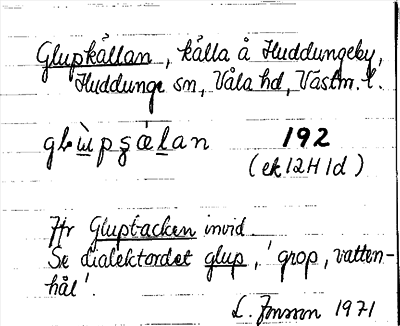 Glupkällan, källa å Huddungeby,
Huddunge sn, Våla hd, Västm. l.
192
(ek 12H 1d)
Jfr Gluptacken invid.
Se dialektordet glup, 'grop, vatten-
hål'.
L. Jonsson 1971